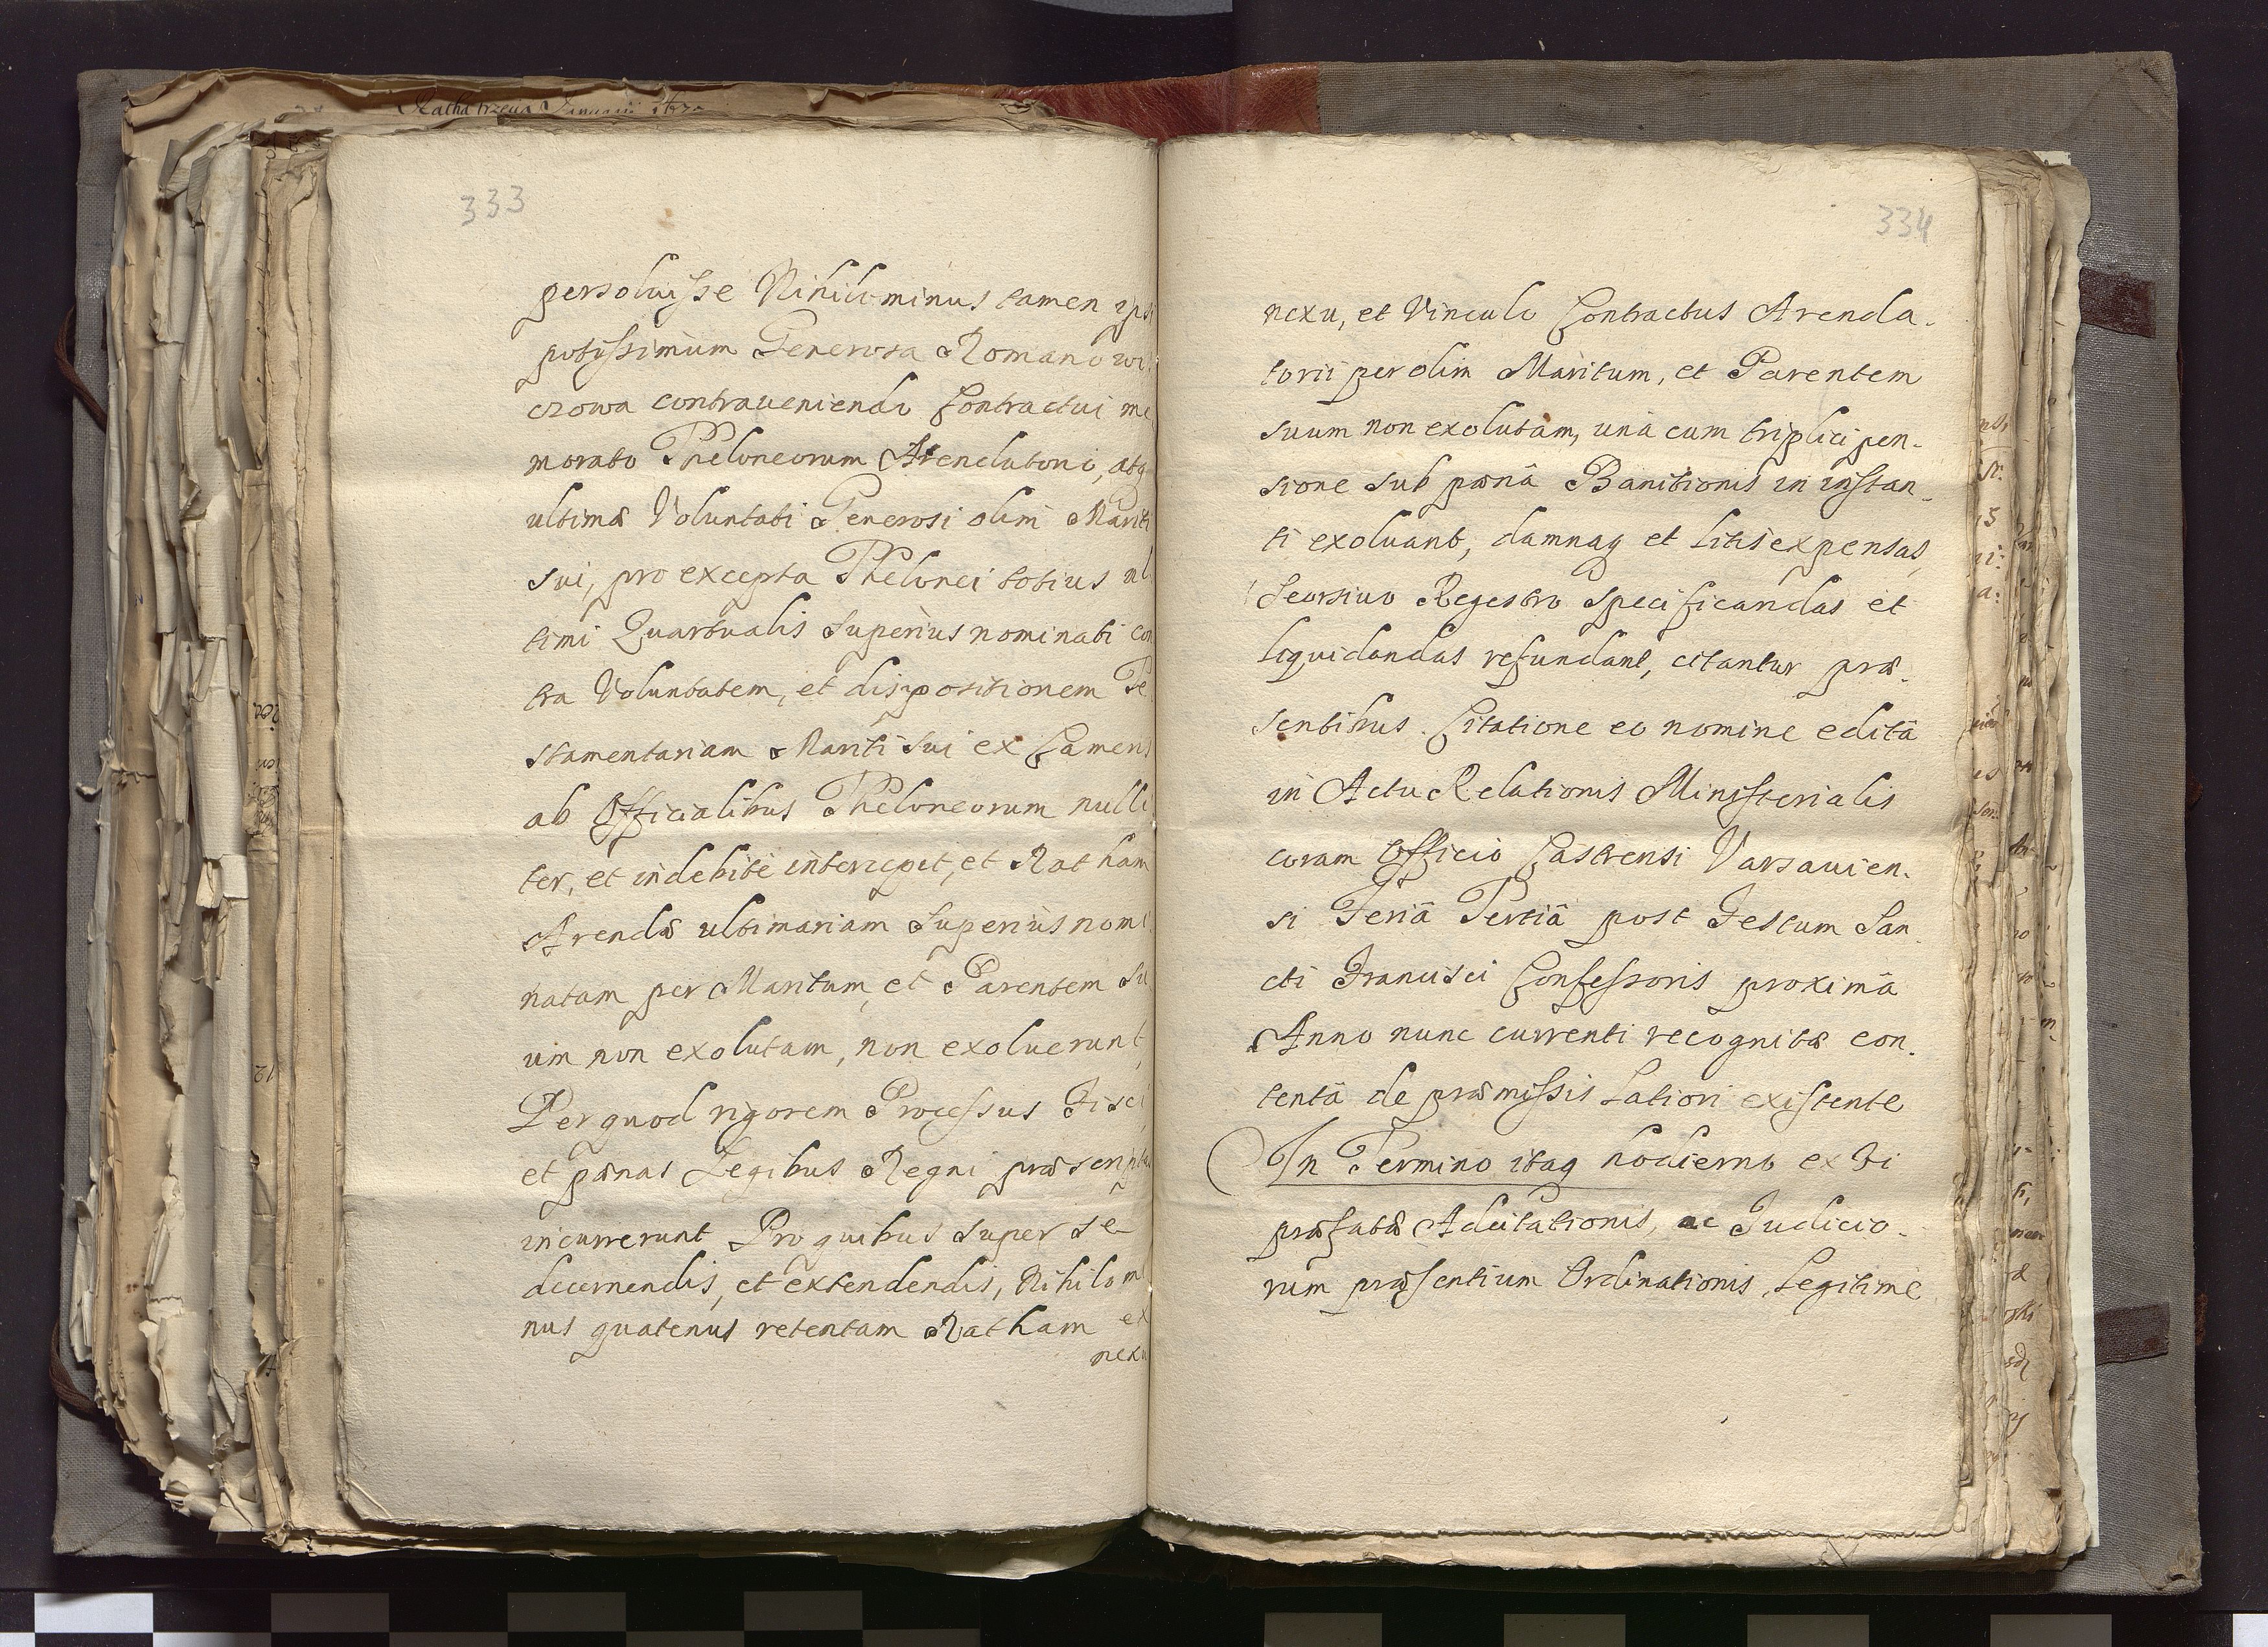 Ratha trzecia Januarii
333
persoluisse Nihilominus tamen
potissimum Generosa Romanowi
czowa contraueniendo Contractui me
morato Theloneorum Arendatorio, atq
ultimæ Voluntati Generosi olim Mariti
sui, pro excepta Thelonei totius ul
timi Quartualis superius nominati con
tra Voluntatem, et dispositionem Te
stamentariam Mariti sui ex Camera
ab Officialibus Theloneorum nulli
ter, et indebitè intercepit, et Ratham
Arendæ ultimariam superius nomi
natam per Maritum et Parentem su
um non exolutam, non exoluerunt,
Per quod rigorem Processus Fisci,
et pænas Legibus Regni præscriptas
incurrerunt Pro quibus super se
decernendis, et extendendis, Nihilomi
nus quatenus retentam Ratham ex
nexu
334
nexu, et Vinculo Contractus Arenda-
torii per olim Maritum, et Parentem
suum non exolutam, unà cum triplici pen-
sione sub pænâ Banitionis in instan-
ti exoluant, damnaq et litis expensas,
Seorsivo Regestro specificandas et
liquidandas refundant, citantur præ-
sentibus. Citatione eo nomine editâ
in Actu Relationis Ministerialis
coram Officio Castrensi Varsavien-
si Feriâ Tertiâ post Festum San-
cti Francisci Confessoris proximâ
Anno nunc currenti recognitæ con-
tentâ de præmissis Latiori existente
In Termino itaq hodierno ex Vi
præfatæ Adcitationis, ac Judicio-
rum præsentium Ordinationis, Legitimè